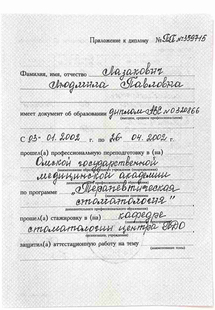 Приложение к диплому № ПП № 359715
Фамилия, имя, отчество Лазахович
Людмила Павловна
имеет документ об образовании диплом
С 03.01.2002 г. по 26.04.2002 г.
прошел(а) профессиональную переподготовку в (на)
Омской государственной
медицинской академии
по программе „Терапевтическая
стоматология"
прошел(а) стажировку в (на) кафедре
стоматологии центра ПДО
защитил(а) аттестационную работу на тему